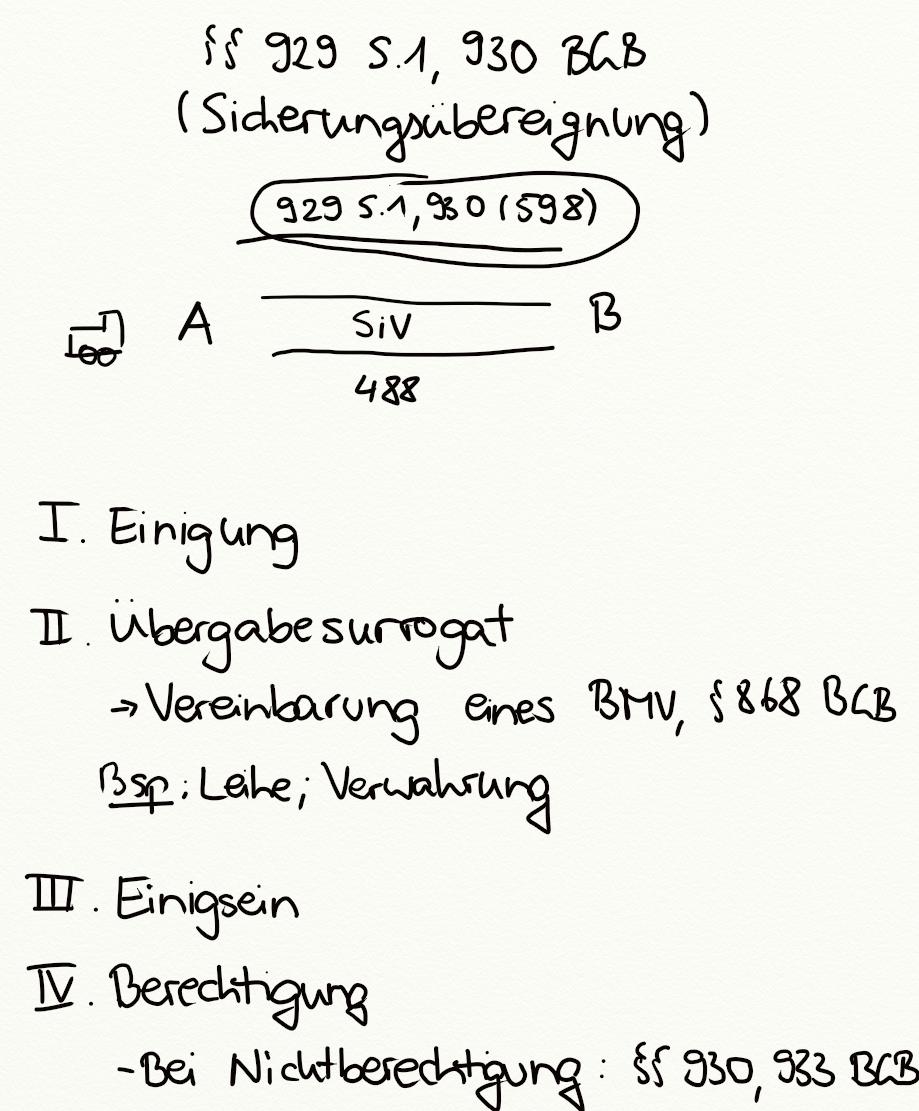 §§ 929 S.1, 930 BGB
(Sicherungsübereignung)
929 S.1, 930 (598)
A SiV B
488
I. Einigung
II. Übergabesurrogat
→ Vereinbarung eines BMV, § 868 BGB
Bsp: Leihe; Verwahrung
III. Einigsein
IV. Berechtigung
- Bei Nichtberechtigung: §§ 930, 933 BGB